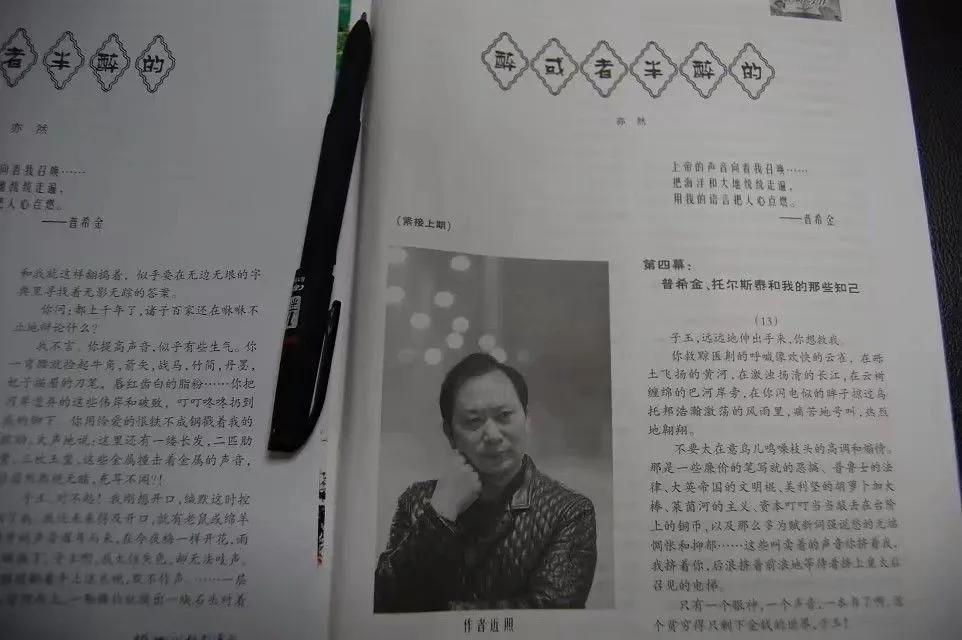 者半醉的
亦 然
向着我召唤……
把人心点燃。
——普希金
和我就这样翻捣着，似乎要在无边无垠的字
典里寻找着无影无踪的答案。
你问：都上千年了，诸子百家还在咻咻不
止地辩论什么？
我不言。你提高声音，似乎有些生气。你
一弯腰就捡起牛角，箭矢，战马，竹简，丹墨，
妃子描眉的刀笔，唇红齿白的脂粉……你把
叮叮咚咚扔到
的脚下。你用恰爱的恨铁不成钢戳着我的
大声地说：这里还有一缕长发，二匹肋
这些金属撞击着金属的声音，
充耳不闻？！
子玉，对不起！我刚想开口，缄默这时控
就有老鼠或绵羊
一样开花，而
却无法吱声。
醉或者半醉的
亦 然
上帝的声音向着我召唤……
把海洋和大地统统走遍，
用我的语言把人心点燃。
——普希金
（紧接上期）
作者近照
第四幕：
普希金、托尔斯泰和我的那些知己
（13）
子玉，远远地伸出手来，你想救我。
你救赎医荆的呼喊像欢快的云雀，在砾
土飞扬的黄河，在激浊扬清的长江，在云树
缠绵的巴河岸旁，在你闪电似的眸子掠过乌
托邦浩瀚激荡的风雨里，痛苦地号叫，热烈
地翱翔。
不要太在意鸟儿鸣噪枝头的高调和煽情。
那是一些廉价的笔写就的恶搞，普鲁士的法
律、大英帝国的文明棍、美利坚的胡萝卜加大
棒、莱茵河的主义、资本叮叮当当敲击在台阶
上的铜币，以及那么多为赋新词强说愁的无端
惆怅和抑郁……这些叫卖着的声音你挤着我，
我挤着你，后浪挤着前浪地等待着挤上皇太后
召见的电梯。
只有一个眼神，一个声音，一本书了啊，这
个贫穷得只剩下金钱的世界，子玉！